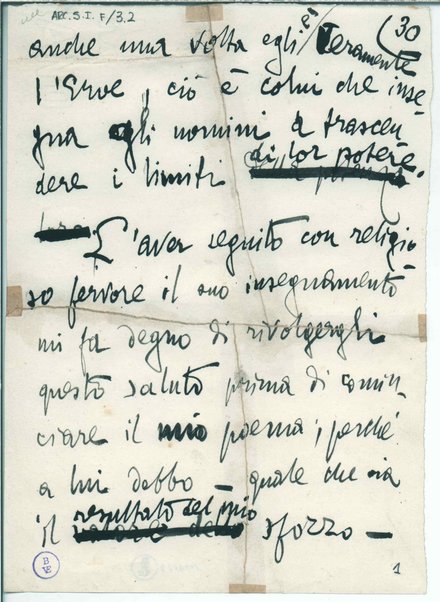 ARC. S. I. F/3.2
30
anche una volta egli è veramente
l'Eroe, ciò è colui che inse-
gna agli uomini a trascen
dere i limiti di lor potere.
L'aver seguito con religio-
so fervore il suo insegnamento
mi fa degno di rivolgergli
questo saluto prima di comin-
ciare il mio poema; perché
a lui debbo — quale che sia
il resultato del mio sforzo —
BVE
1